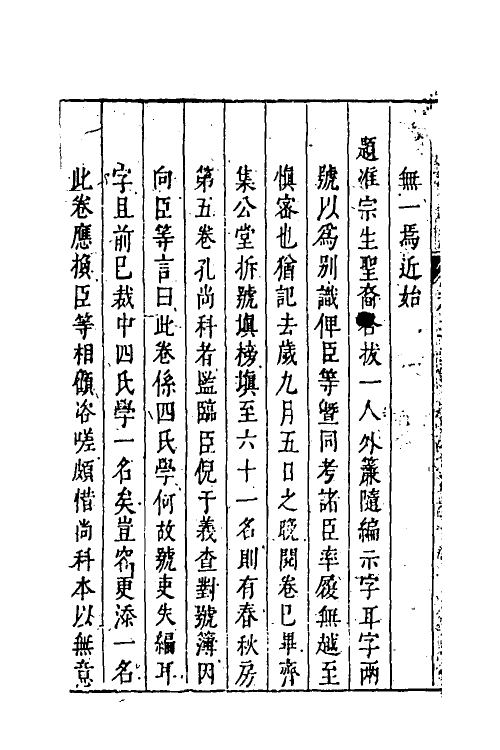 無一焉近始
題准宗生聖裔各拔一人外簾隨編示字耳字兩
號以爲別識俾臣等曁同考諸臣率履無越至
愼密也猶記去歲九月五日之晚閱卷已畢齊
集公堂拆號塡榜塡至六十一名則有春秋房
第五卷孔尚科者監臨臣倪于義查對號簿因
向臣等言曰此卷係四氏學何故號吏失編耳
字且前已裁中四氏學一名矣豈容更添一名
此卷應換臣等相顧咨嗟頗惜尚科本以無意